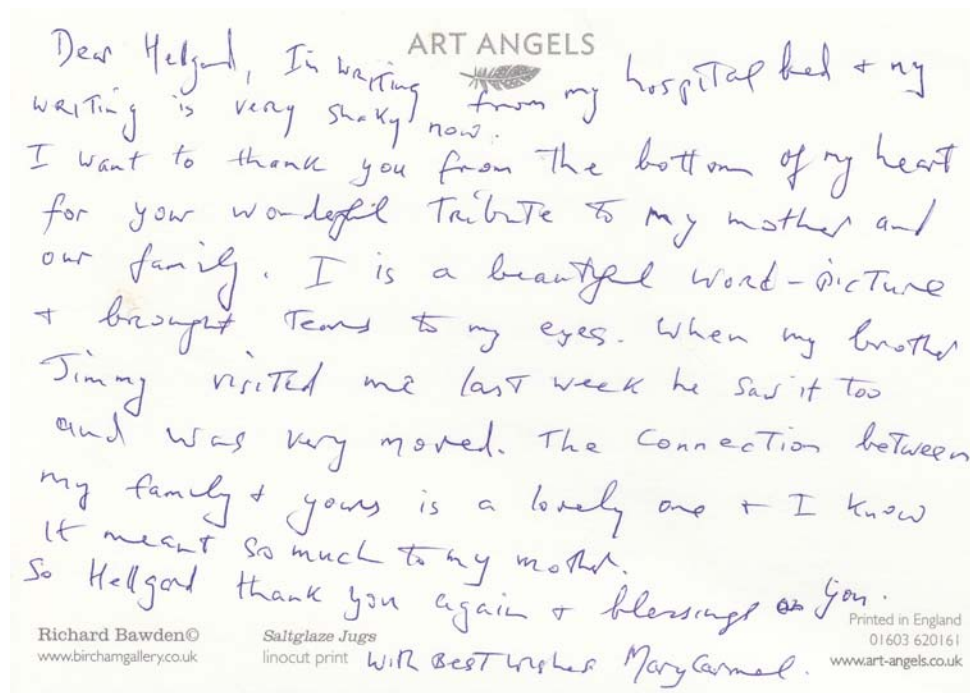 ART ANGELS
Dear Helgard, I'm writing from my hospital bed + my
writing is very shaky now.
I want to thank you from the bottom of my heart
for your wonderful tribute to my mother and
our family. I is a beautiful word-picture
+ brought tears to my eyes. When my brother
Jimmy visited me last week he saw it too
and was very moved. The connection between
my family + yours is a lovely one + I know
it meant so much to my mother.
So Hellgard thank you again + blessings on you.
With Best wishes MaryCarmel.
Richard Bawden©
www.birchamgallery.co.uk
Saltglaze Jugs
linocut print
Printed in England
01603 620161
www.art-angels.co.uk